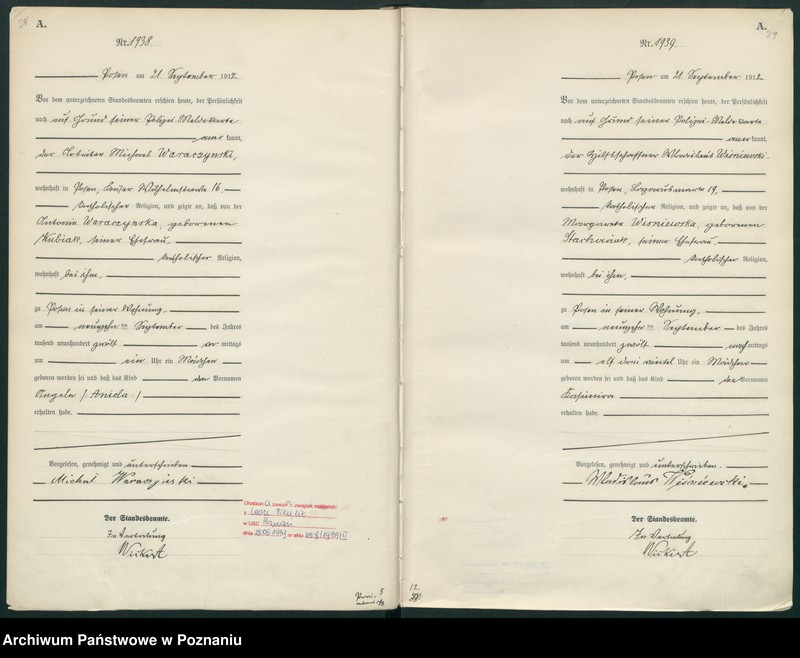 A.
Nr. 1938
Posen am 21. September 1912
Vor dem unterzeichneten Standesbeamten erschien heute, der Persönlichkeit
nach auf Grund seiner Polizei-Meldekarte
anerkannt,
der Arbeiter Michael Waraczynski,
wohnhaft in Posen, Kaiser Wilhelmstraße 16,
katholischer Religion, und zeigte an, daß von der
Antonie Waraczynska, geborenen
Kubiak, seiner Ehefrau,
katholischer Religion,
wohnhaft bei ihm,
zu Posen in seiner Wohnung,
am neunzehnten September des Jahres
tausend neunhundert zwölf vormittags
um ein Uhr ein Mädchen
geboren worden sei und daß das Kind den Vornamen
Angela (Aniela)
erhalten habe.
Vorgelesen, genehmigt und unterschrieben
Michał Waraczynski
Der Standesbeamte.
In Vertretung
Urodzona zawarła związek małżeński
z Leon
w USC Poznań
dnia
nr aktu
A.
Nr. 1939
Posen am 21. September 1912
Vor dem unterzeichneten Standesbeamten erschien heute, der Persönlichkeit
nach auf Grund seiner Polizei-Meldekarte
anerkannt,
der Hilfsschaffner Wladislaus Wisniewski.
wohnhaft in Posen, 19,
katholischer Religion, und zeigte an, daß von der
Margareta Wisniewska, geborenen
Stachowiak, seiner Ehefrau,
katholischer Religion,
wohnhaft bei ihm,
zu Posen in seiner Wohnung,
am neunzehnten September des Jahres
tausend neunhundert zwölf nachmittags
um elf drei viertel Uhr ein Mädchen
geboren worden sei und daß das Kind den Vornamen
Kasimira
erhalten habe.
Vorgelesen, genehmigt und unterschrieben.
Wladislaus Wisniewski.
Der Standesbeamte.
In Vertretung
Archiwum Państwowe w Poznaniu